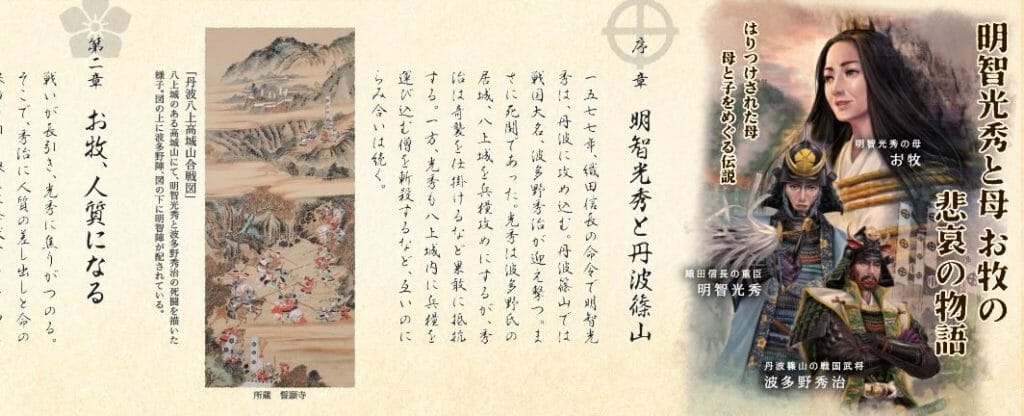 明智光秀と母 お牧の
悲哀の物語
はりつけされた母
母と子をめぐる伝説
明智光秀の母
お牧
織田信長の重臣
明智光秀
丹波篠山の戦国武将
波多野秀治
序章 明智光秀と丹波篠山
一五七七年、織田信長の命令で明智光
秀は、丹波に攻め込む。丹波篠山では
戦国大名、波多野秀治が迎え撃つ。ま
さに死闘であった。光秀は波多野氏の
居城、八上城を兵糧攻めにするが、秀
治は奇襲を仕掛けるなど果敢に抵抗
する。一方、光秀も八上城内に兵糧を
運び込む僧を斬殺するなど、互いのに
らみ合いは続く。
「丹波八上高城山合戦図」
八上城のある高城山にて、明智光秀と波多野秀治の死闘を描いた
様子。図の上に波多野陣、図の下に明智陣が配されている。
所蔵 誓願寺
第二章 お牧、人質になる
戦いが長引き、光秀に焦りがつのる。
そこで、秀治に人質の差し出しと命の